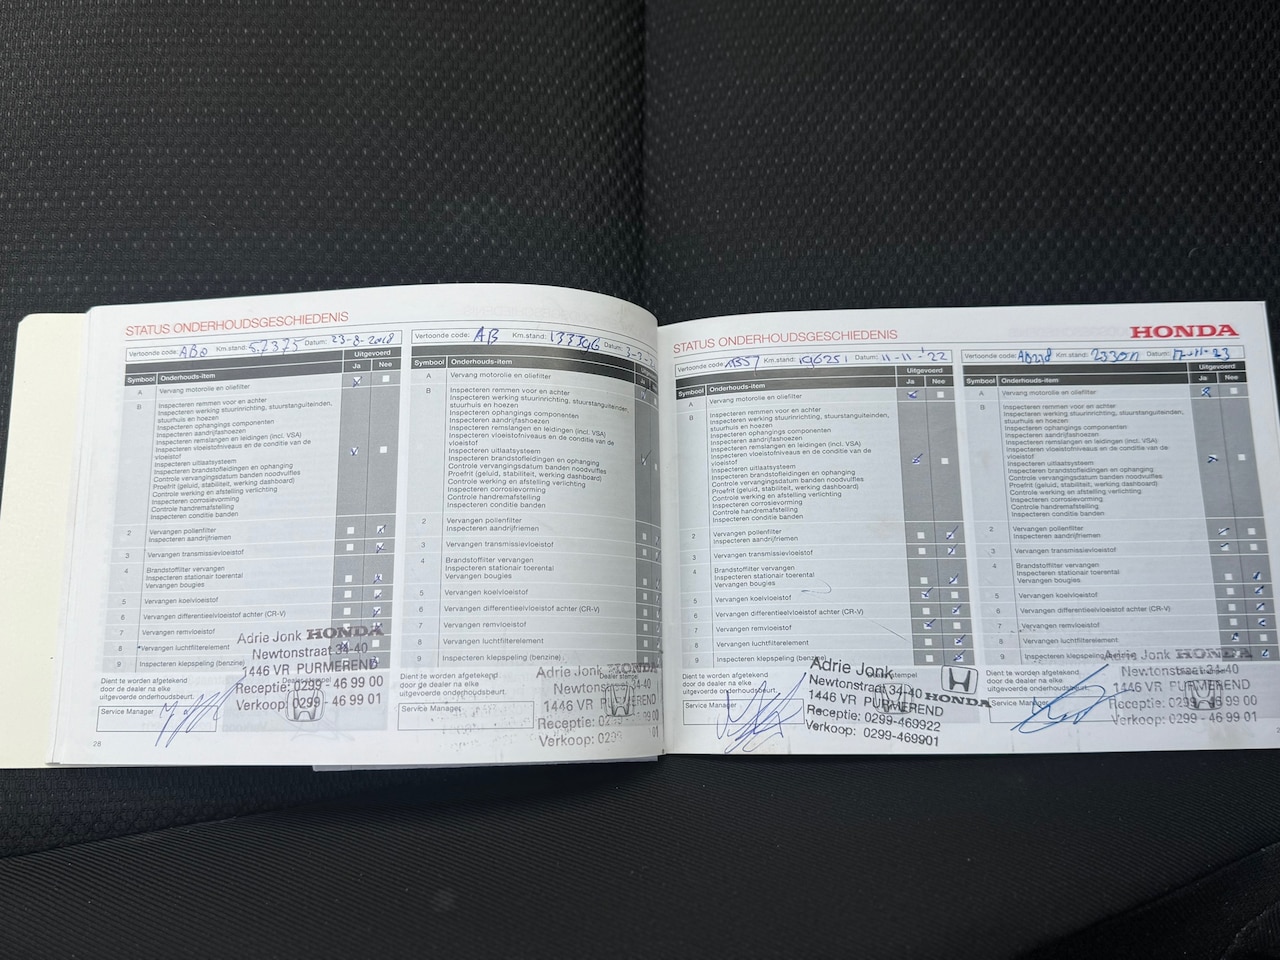 STATUS ONDERHOUDSGESCHIEDENIS
Vertoonde code: AB0 Km.stand: 57375 Datum: 23-8-2018
Uitgevoerd
Symbool Onderhouds-item Ja Nee
A Vervang motorolie en oliefilter
B Inspecteren remmen voor en achter
Inspecteren werking stuurinrichting, stuurstangeinden,
stuurhuis en hoezen
Inspecteren ophangings componenten
Inspecteren aandrijfashoezen
Inspecteren remslangen en leidingen (incl. VSA)
Inspecteren vloeistofniveaus en de conditie van de
vloeistof
Inspecteren uitlaatsysteem
Inspecteren brandstofleidingen en ophanging
Controle vervangingsdatum banden noodvulfles
Proefrit (geluid, stabiliteit, werking dashboard)
Controle werking en afstelling verlichting
Inspecteren corrosievorming
Controle handremafstelling
Inspecteren conditie banden
2 Vervangen pollenfilter
Inspecteren aandrijfriemen
3 Vervangen transmissievloeistof
4 Brandstoffilter vervangen
Inspecteren stationair toerental
Vervangen bougies
5 Vervangen koelvloeistof
6 Vervangen differentieelvloeistof achter (CR-V)
7 Vervangen remvloeistof
8 Vervangen luchtfilterelement
9 Inspecteren klepspeling (benzine)
Dient te worden afgetekend
door de dealer na elke
uitgevoerde onderhoudsbeurt.
Service Manager
Dealer stempel
Adrie Jonk HONDA
Newtonstraat 34-40
1446 VR PURMEREND
Receptie: 0299 - 46 99 00
Verkoop: 0299 - 46 99 01
28
Vertoonde code: AB Km.stand: 133396 Datum:
Symbool Onderhouds-item
A Vervang motorolie en oliefilter
B Inspecteren remmen voor en achter
Inspecteren werking stuurinrichting, stuurstangeinden,
stuurhuis en hoezen
Inspecteren ophangings componenten
Inspecteren aandrijfashoezen
Inspecteren remslangen en leidingen (incl. VSA)
Inspecteren vloeistofniveaus en de conditie van de
vloeistof
Inspecteren uitlaatsysteem
Inspecteren brandstofleidingen en ophanging
Controle vervangingsdatum banden noodvulfles
Proefrit (geluid, stabiliteit, werking dashboard)
Controle werking en afstelling verlichting
Inspecteren corrosievorming
Controle handremafstelling
Inspecteren conditie banden
2 Vervangen pollenfilter
Inspecteren aandrijfriemen
3 Vervangen transmissievloeistof
4 Brandstoffilter vervangen
Inspecteren stationair toerental
Vervangen bougies
5 Vervangen koelvloeistof
6 Vervangen differentieelvloeistof achter (CR-V)
7 Vervangen remvloeistof
8 Vervangen luchtfilterelement
9 Inspecteren klepspeling (benzine)
Dient te worden afgetekend
door de dealer na elke
uitgevoerde onderhoudsbeurt.
Service Manager
Dealer stempel
Adrie Jonk HONDA
Newtonstraat 34-40
1446 VR PURMEREND
Receptie: 0299
Verkoop: 0299 01
STATUS ONDERHOUDSGESCHIEDENIS
Vertoonde code: Km.stand: 196251 Datum: 11-11-'22
Uitgevoerd
Symbool Onderhouds-item Ja Nee
A Vervang motorolie en oliefilter
B Inspecteren remmen voor en achter
Inspecteren werking stuurinrichting, stuurstangeinden,
stuurhuis en hoezen
Inspecteren ophangings componenten
Inspecteren aandrijfashoezen
Inspecteren remslangen en leidingen (incl. VSA)
Inspecteren vloeistofniveaus en de conditie van de
vloeistof
Inspecteren uitlaatsysteem
Inspecteren brandstofleidingen en ophanging
Controle vervangingsdatum banden noodvulfles
Proefrit (geluid, stabiliteit, werking dashboard)
Controle werking en afstelling verlichting
Inspecteren corrosievorming
Controle handremafstelling
Inspecteren conditie banden
2 Vervangen pollenfilter
Inspecteren aandrijfriemen
3 Vervangen transmissievloeistof
4 Brandstoffilter vervangen
Inspecteren stationair toerental
Vervangen bougies
5 Vervangen koelvloeistof
6 Vervangen differentieelvloeistof achter (CR-V)
7 Vervangen remvloeistof
8 Vervangen luchtfilterelement
9 Inspecteren klepspeling (benzine)
Dient te worden afgetekend
door de dealer na elke
uitgevoerde onderhoudsbeurt.
Service Manager
Adrie Jonk
Newtonstraat 34-40 HONDA
1446 VR PURMEREND
Receptie: 0299-469922
Verkoop: 0299-469901
HONDA
Vertoonde code: Km.stand: Datum: 17-11-23
Uitgevoerd
Symbool Onderhouds-item Ja Nee
A Vervang motorolie en oliefilter
B Inspecteren remmen voor en achter
Inspecteren werking stuurinrichting, stuurstangeinden,
stuurhuis en hoezen
Inspecteren ophangings componenten
Inspecteren aandrijfashoezen
Inspecteren remslangen en leidingen (incl. VSA)
Inspecteren vloeistofniveaus en de conditie van de
vloeistof
Inspecteren uitlaatsysteem
Inspecteren brandstofleidingen en ophanging
Controle vervangingsdatum banden noodvulfles
Proefrit (geluid, stabiliteit, werking dashboard)
Controle werking en afstelling verlichting
Inspecteren corrosievorming
Controle handremafstelling
Inspecteren conditie banden
2 Vervangen pollenfilter
Inspecteren aandrijfriemen
3 Vervangen transmissievloeistof
4 Brandstoffilter vervangen
Inspecteren stationair toerental
Vervangen bougies
5 Vervangen koelvloeistof
6 Vervangen differentieelvloeistof achter (CR-V)
7 Vervangen remvloeistof
8 Vervangen luchtfilterelement
9 Inspecteren klepspeling
Dient te worden afgetekend
door de dealer na elke
uitgevoerde onderhoudsbeurt.
Service Manager
Adrie Jonk HONDA
Newtonstraat 34-40
1446 VR PURMEREND
Receptie: 0299 - 46 99 00
Verkoop: 0299 - 46 99 01